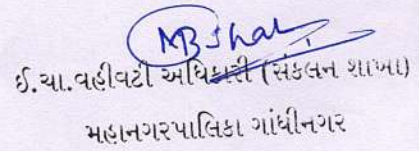 MB Shah
ઈ.ચા.વહીવટી અધિકારી (સંકલન શાખા)
મહાનગરપાલિકા ગાંધીનગર